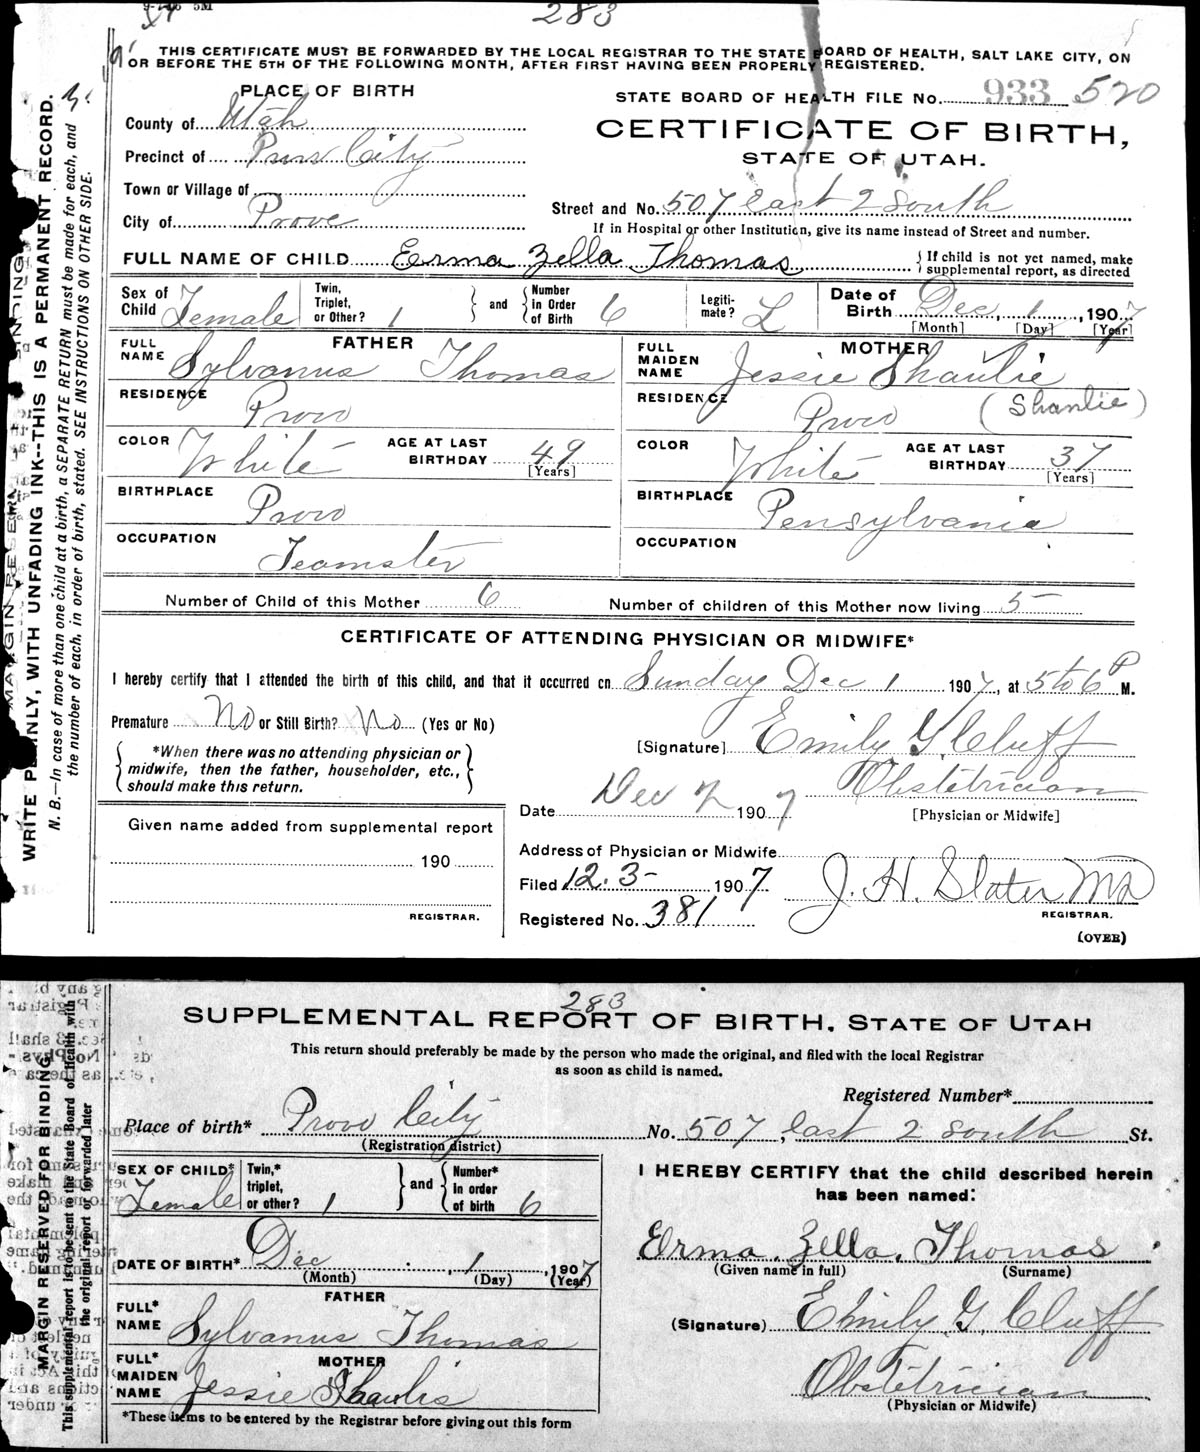 283
THIS CERTIFICATE MUST BE FORWARDED BY THE LOCAL REGISTRAR TO THE STATE BOARD OF HEALTH, SALT LAKE CITY, ON
OR BEFORE THE 5TH OF THE FOLLOWING MONTH, AFTER FIRST HAVING BEEN PROPERLY REGISTERED.
PLACE OF BIRTH
STATE BOARD OF HEALTH FILE No. 933 520
County of Utah
CERTIFICATE OF BIRTH,
Precinct of Provo City
STATE OF UTAH.
Town or Village of
Street and No. 507 East 2 South
City of Provo
If in Hospital or other Institution, give its name instead of Street and number.
FULL NAME OF CHILD Erma Zella Thomas
If child is not yet named, make
supplemental report, as directed
Sex of Child Female
Twin, Triplet, or Other? 1 and Number in Order of Birth 6
Legitimate? L
Date of Birth Dec, 1, 1907
[Month] [Day] [Year]
FATHER
FULL NAME Sylvanus Thomas
MOTHER
FULL MAIDEN NAME Jessie Shaulie
RESIDENCE Provo
RESIDENCE Provo (Shanlie)
COLOR White AGE AT LAST BIRTHDAY 49 [Years]
COLOR White AGE AT LAST BIRTHDAY 37 [Years]
BIRTHPLACE Provo
BIRTHPLACE Pensylvania
OCCUPATION Teamster
OCCUPATION
Number of Child of this Mother 6 Number of children of this Mother now living 5
CERTIFICATE OF ATTENDING PHYSICIAN OR MIDWIFE*
I hereby certify that I attended the birth of this child, and that it occurred on Sunday Dec 1 1907, at 5 to 6 P M.
Premature No or Still Birth? No (Yes or No)
[Signature] Emily G. Cluff
*When there was no attending physician or
midwife, then the father, householder, etc.,
should make this return.
Obstetrician
Date Dec 2 1907 [Physician or Midwife]
Given name added from supplemental report
190
REGISTRAR.
Address of Physician or Midwife
Filed 12.3- 1907
J. H. Slater MD
Registered No. 381 REGISTRAR.
(OVER)
WRITE PLAINLY, WITH UNFADING INK--THIS IS A PERMANENT RECORD.
N. B.—In case of more than one child at a birth, a SEPARATE RETURN must be made for each, and
the number of each, in order of birth, stated. SEE INSTRUCTIONS ON OTHER SIDE.
283
SUPPLEMENTAL REPORT OF BIRTH, STATE OF UTAH
This return should preferably be made by the person who made the original, and filed with the local Registrar
as soon as child is named.
Registered Number*
Place of birth* Provo City No. 507, East 2 South St.
(Registration district)
SEX OF CHILD* Female
Twin,* triplet, or other? 1 and Number* in order of birth 6
I HEREBY CERTIFY that the child described herein
has been named:
DATE OF BIRTH* Dec, 1, 1907
(Month) (Day) (Year)
Erma Zella Thomas
(Given name in full) (Surname)
FATHER
FULL* NAME Sylvanus Thomas
(Signature) Emily G. Cluff
MOTHER
FULL* MAIDEN NAME Jessie Shaulis
Obstetrician
(Physician or Midwife)
*These items to be entered by the Registrar before giving out this form
MARGIN RESERVED FOR BINDING
This supplemental report is to be sent to the State Board of Health with
the original report or forwarded later